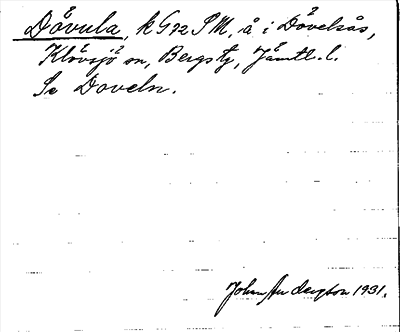 Dåvula, k G92 SM, å i Dåvelsås,
Klövsjö sn, Bergs tg, Jämtl. l.
Se Doveln.
John Andersson 1931.